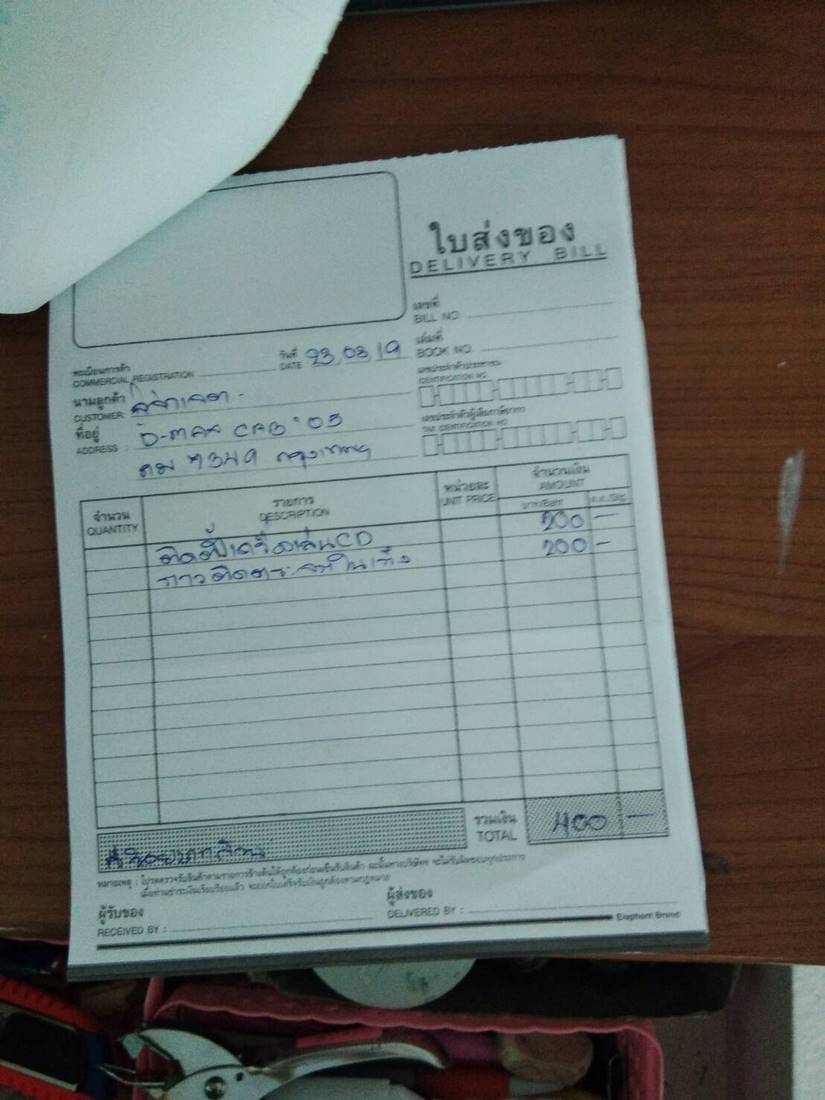 ใบส่งของ
DELIVERY BILL
เลขที่
BILL NO.
เล่มที่
BOOK NO.
ทะเบียนการค้า
COMMERCIAL REGISTRATION
วันที่
DATE 23 03 19
เลขประจำตัวประชาชน
IDENTIFICATION NO.
นามลูกค้า
CUSTOMER
เลขประจำตัวผู้เสียภาษีอากร
TAX IDENTIFICATION NO.
ที่อยู่
ADDRESS D-MAX CAB '05
กรุงเทพ
จำนวน
QUANTITY
รายการ
DESCRIPTION
หน่วยละ
UNIT PRICE
จำนวนเงิน
AMOUNT
บาท/Baht ส.ต./Stg.
ติดตั้งเครื่องเล่นCD 200 –
200 –
รวมเงิน
TOTAL 400 –
สี่ร้อยบาทถ้วน
ผู้รับของ
RECEIVED BY :
ผู้ส่งของ
DELIVERED BY :
Elephant Brand